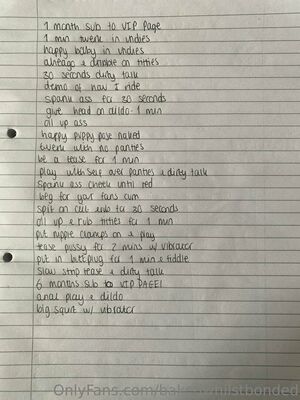 1 month sub to VIP Page
1 min twerk in undies
happy baby in undies
ahegao & dribble on titties
30 seconds dirty talk
demo of how I ride
spank ass for 30 seconds
give head on dildo 1 min
oil up ass
happy puppy pose naked
twerk with no panties
be a tease for 1 min
play with self over panties & dirty talk
Spank ass cheek until red
beg for your fans cum
spit on clit & rub for 30 seconds
oil up & rub titties for 1 min
put nipple clamps on & play
tease pussy for 2 mins w/ vibrator
put in buttplug for 1 min & fiddle
Slow strip tease & dirty talk
6 months sub to VIP PAGE!
anal play & dildo
big squirt w/ vibrator